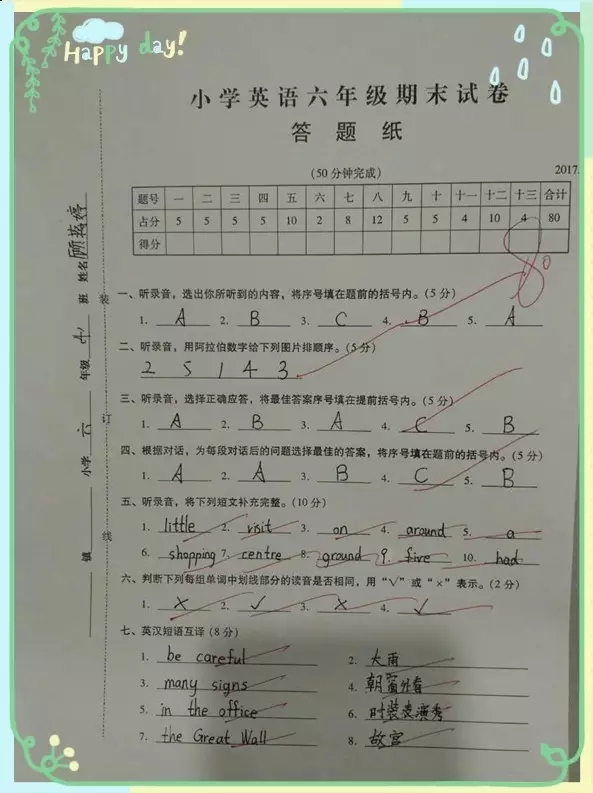 Happy day!
小学英语六年级期末试卷
答 题 纸
(50分钟完成)
2017.
题号 一 二 三 四 五 六 七 八 九 十 十一 十二 十三 合计
占分 5 5 5 5 10 2 8 12 5 5 4 10 4 80
得分
80
装 订 线
镇 小学 六 年级 班 姓名
一、听录音，选出你所听到的内容，将序号填在题前的括号内。(5分)
1. A 2. B 3. C 4. B 5. A
二、听录音，用阿拉伯数字给下列图片排顺序。(5分)
2 5 1 4 3
三、听录音，选择正确应答，将最佳答案序号填在提前括号内。(5分)
1. A 2. B 3. A 4. C 5. B
四、根据对话，为每段对话后的问题选择最佳的答案，将序号填在题前的括号内。(5分)
1. A 2. A 3. B 4. C 5. B
五、听录音，将下列短文补充完整。(10分)
1. little 2. visit 3. on 4. around 5. a
6. shopping 7. centre 8. ground 9. five 10. had
六、判断下列每组单词中划线部分的读音是否相同，用“√”或“×”表示。(2分)
1. × 2. √ 3. × 4. √
七、英汉短语互译(8分)
1. be careful 2. 大雨
3. many signs 4. 朝窗外看
5. in the office 6. 时装表演秀
7. the Great Wall 8. 故宫